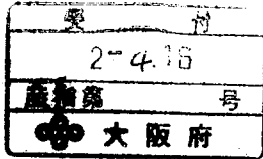 受 付
2-4.16
産指第 号
大阪府